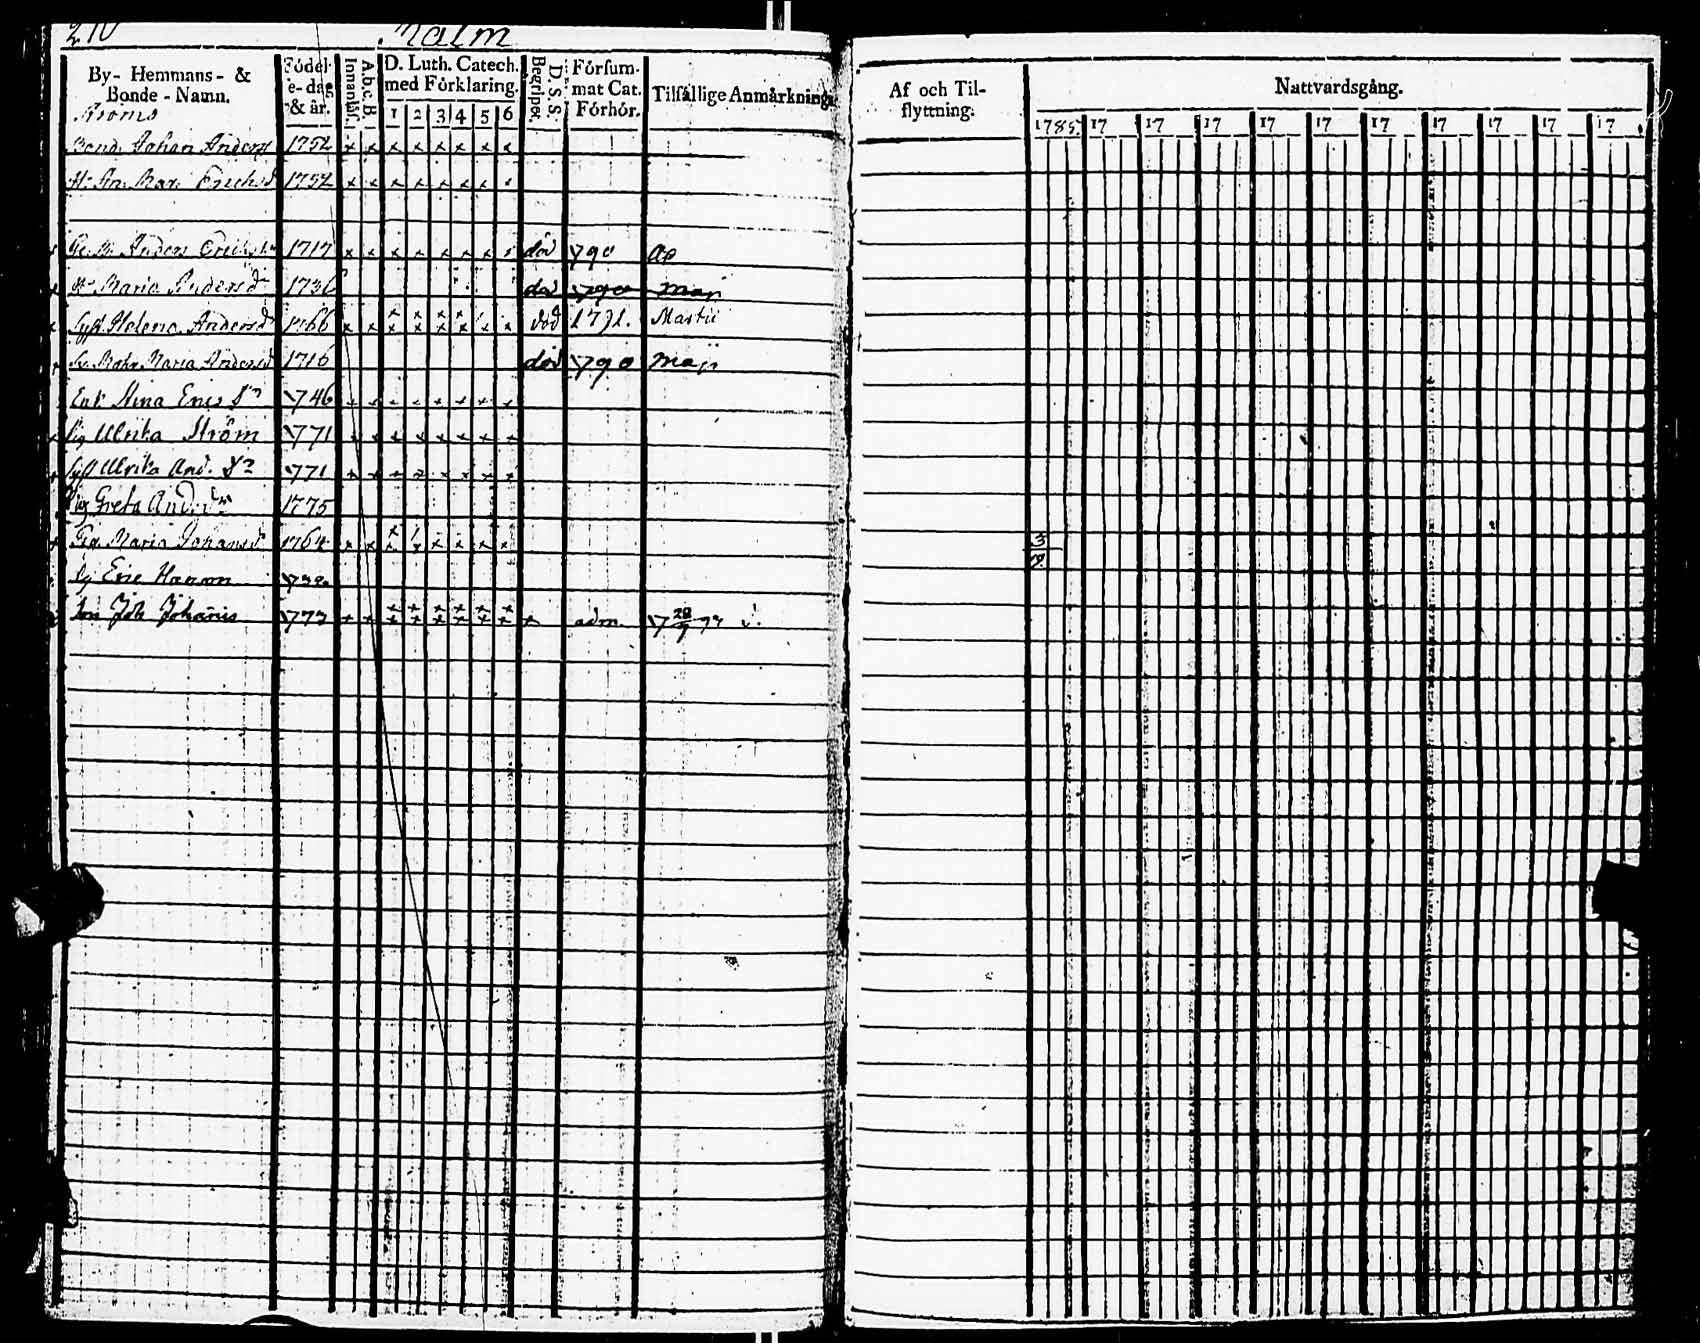 210 Malm
By- Hemmans- & Bonde-Namn. Födel-e-dag & år. Innanläsn. A.b.c.B. D. Luth. Catech. med Förklaring. 1 2 3 4 5 6 Begriper. D.S.S. Försummat Cat. Förhör. Tilfällige Anmärkning
Ströms
Bond. Johan Anders 1752 x x x x x x x x
H. An. Mari Erichsd 1752 x x x x x x x x
Anders Erichs 1717 x x x x x x x x död 790 Ap
Maria Andersd 1736 död 790 Maji
Helena Andersd 1766 x x x x x x x x död 1791. Martii
Maria Andersd 1716 död 790 Maji
Enk Stina Erics Dr 746 x x x x x x x x
Pig Ulrika Ström 771 x x x x x x x x
Ulrika And. Dr 771 x x x x x x x x
Pig Greta And. 1775
Pig. Maria Johansd 1764 x x x x x x x x
Eric Hanson 738
Son Joh Johans 773 x x x x x x x x x adm.
Af och Til-flyttning.
Nattvardsgång.
1785. 17 17 17 17 17 17 17 17 17 17
3/8